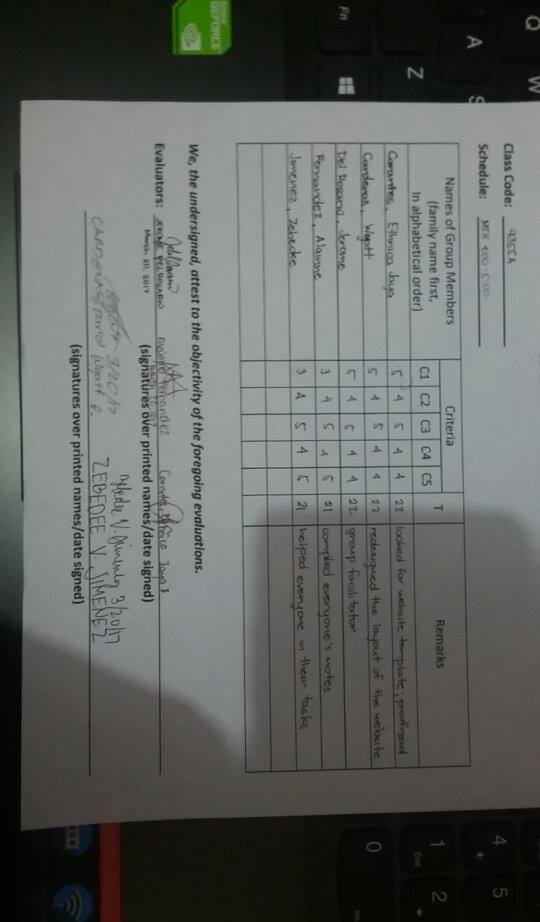 Class Code: 9355A
Schedule: MTH 4:00-5:00
Names of Group Members
(family name first,
In alphabetical order)
Criteria
T
Remarks
C1 C2 C3 C4 C5
Jaya 5 4 5 4 4 22 looked for website template; proofread
Cardenas, Wyatt 5 4 5 4 4 22 redesigned the layout of the website
Del Rosario, Jerome 5 4 5 4 4 22 group facilitator
Fernandez, Alainne 3 4 5 4 5 21 compiled everyone's notes
Jimenez, Zebedee 3 4 5 4 5 21 helped everyone in their tasks
We, the undersigned, attest to the objectivity of the foregoing evaluations.
Evaluators: JEROME DEL ROSARIO Fernandez Jaya
March 20, 2017
(signatures over printed names/date signed)
3/20/17 V. Jimenez 3/20/17
CARDENAS, David Wyatt P. ZEBEDEE V. JIMENEZ
(signatures over printed names/date signed)
Q W
A S
Z
Fn
GEFORCE
4 5
1 2
End
0